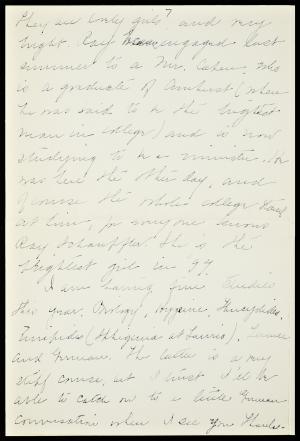 They are lovely girls, and very
bright. Ray became engaged last
summer to a Mr. Cohen, who
is a graduate of Amherst (where
he was said to be the brightest
man in college) and is now
studying to be a minister. He
was here the other day, and
of course the whole college
at him, for everyone knows
Ray Schauffler. She is the
brightest girl in '99.
I am having fine studies
this year. Zoology, Hygiene, Thucydides,
Euripides (Iphigenia at Tauris),
and German. The latter is a very
stiff course, but I trust I'll be
able to catch on to a little German
conversation when I see you